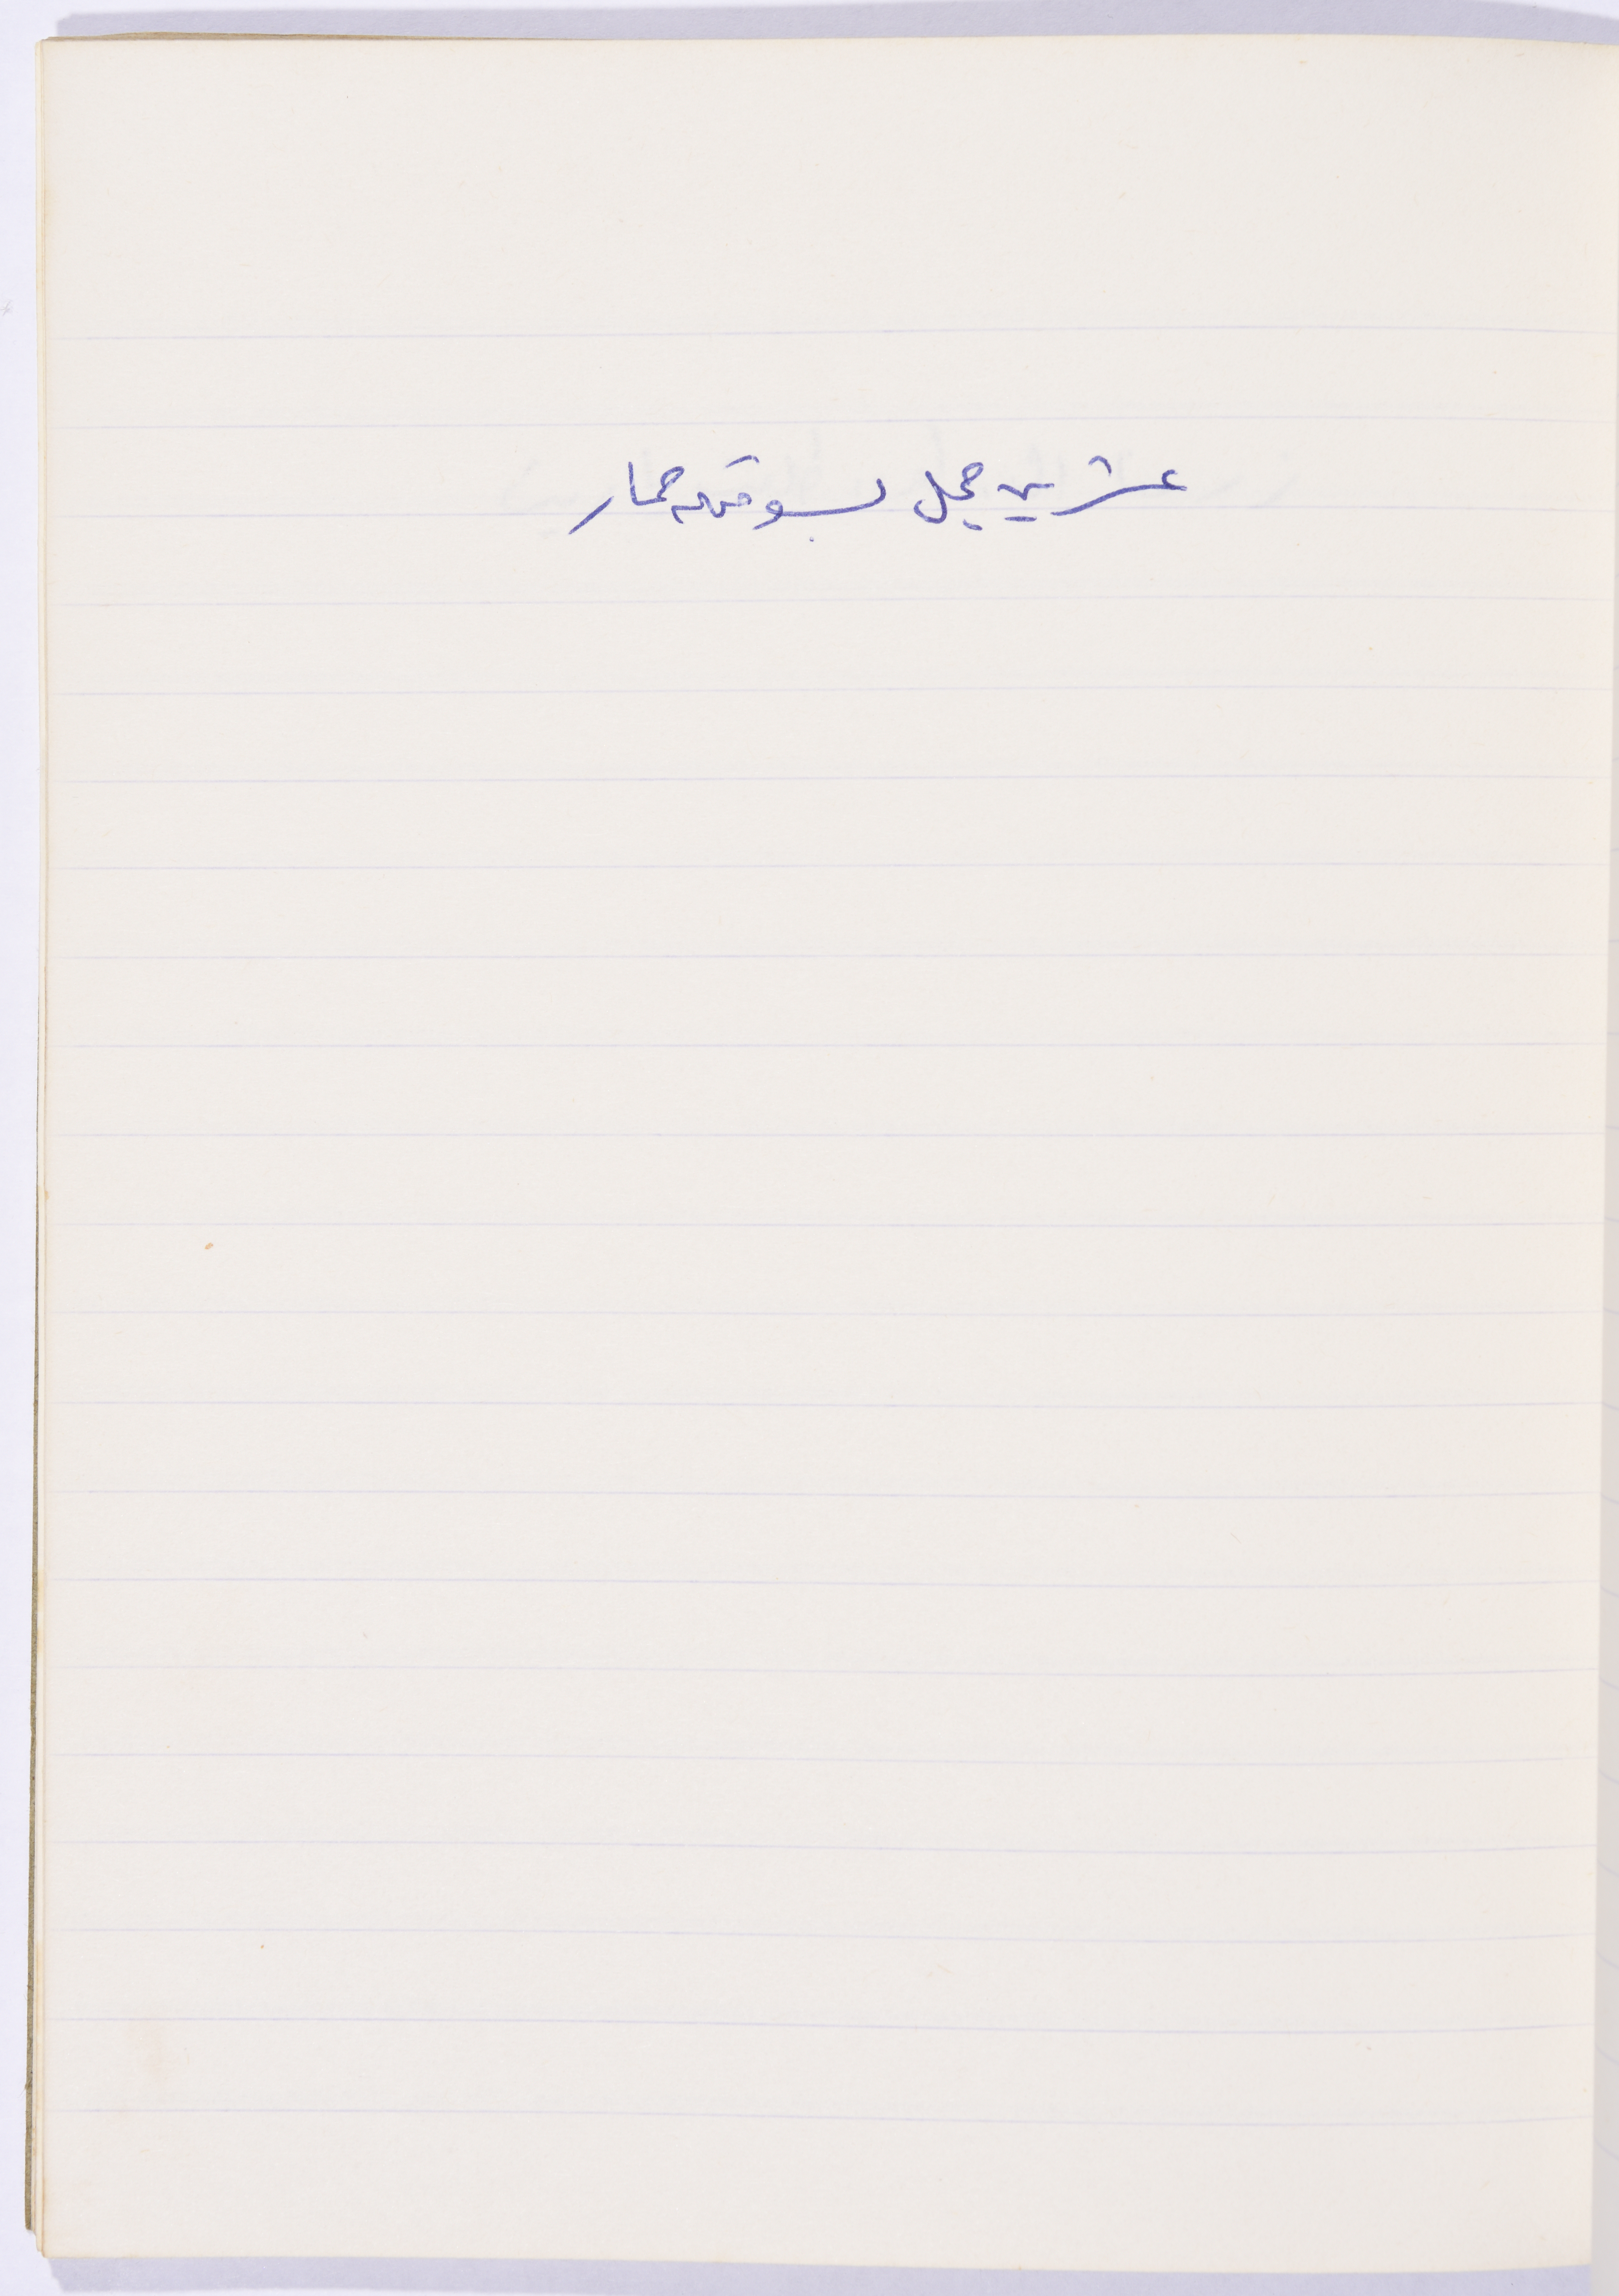 عشرين جمل بسوقهم حمار